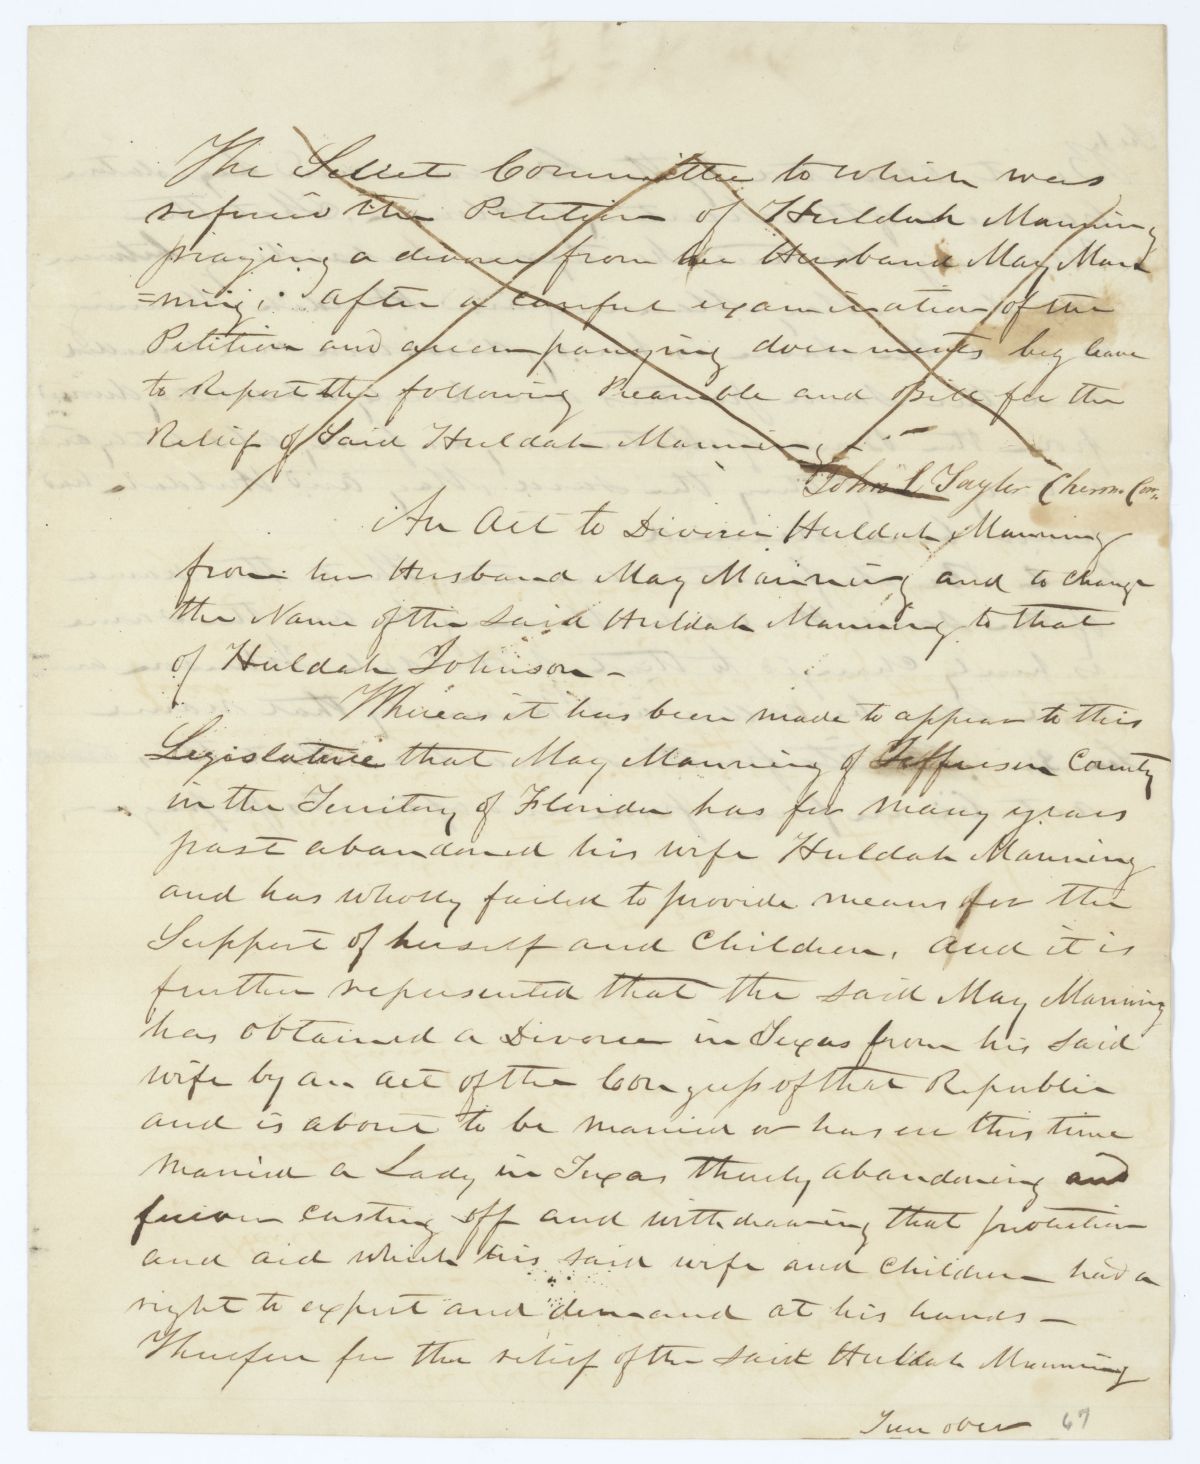 The Select Committee to which was
refered the Petition of Huldah Manning
praying a divorce from her Husband May Man
=ning; after a careful examination of the
Petition and accompanying documents beg leave
to Report the following Preamble and Bill for the
Relief of Said Huldah Manning
John L Taylor Chrm. Com.
An Act to Divorce Huldah Manning
from her Husband May Manning and to change
the Name of the said Huldah Manning to that
of Huldah Johnson -
Whereas it has been made to appear to this
Legislature that May Manning of Jefferson County
in the Territory of Florida has for many years
past abandoned his wife Huldah Manning
and has wholly failed to provide means for the
Support of herself and Children, and it is
further represented that the said May Manning
has obtained a Divorce in Texas from his said
wife by an act of the Congress of that Republic
and is about to be married or has ere this time
married a Lady in Texas thereby abandoning and
forever casting off and withdrawing that protection
and aid which his said wife and Children had a
right to expect and demand at his hands -
Therefore for the relief of the said Huldah Manning
Turn over 67